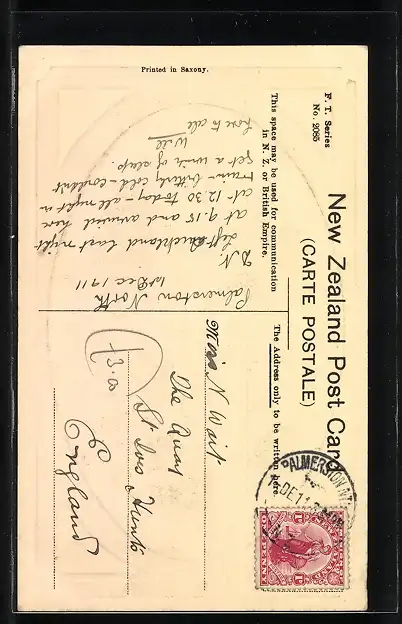 F. T. Series
No. 2085
New Zealand Post Card
(CARTE POSTALE)
This space may be used for communication
in N. Z. or British Empire.
The Address only to be written here.
Printed in Saxony.
Palmerston North
1st Dec 1911
D. N.
Left Auckland last night
at 9.15 and arrived here
at 12.30 today - all night in
train - bitterly cold - couldnt
get a wink of sleep.
Love to all
Will
Miss N Wait
The Quay
St Ives Hunts
England
£3.00
PALMERSTON NTH
DE 11
ONE PENNY